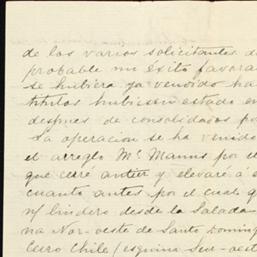 de los varios solicitantes d
probable un éxito favora
se hubiera ya vendido ha
titulos hubiesen estado en
despues de consolidados po
La operacion se ha venido
el arreglo Mc Manus por el
que cerré antier y elevaré á e
cuanto antes por el cual q
n/ lindero desde la Salada
na Nor-oeste de Santo Doming
Cerro Chile (esquina Sud-oest